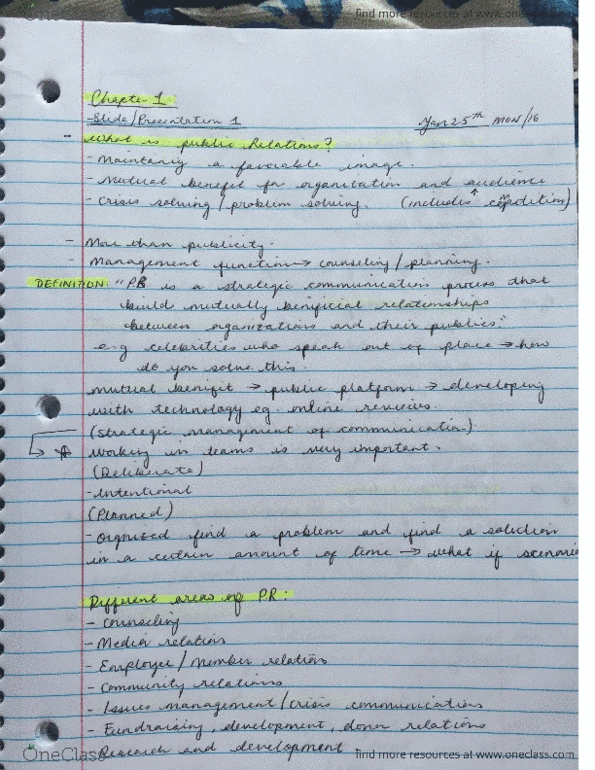 find more resources at www.oneclass.com
Chapter 1
-Slide/Presentation 1 Jan 25th MON/16
- What is public Relations?
- Maintaing a favorable image.
- Mutual benefit for organization and audience
- Crisis solving/problem solving. (includes ↑
- More than publicity.
- Management function → counseling/planning.
DEFINITION: "PR is a strategic communication process that
build mutually beneficial relationships
between organizations and their publics."
e.g celebrities who speak out of place → how
do you solve this.
mutual benifit → public platform → developing
with technology eg. online reviews.
(Strategic management of communication)
Working in teams is very important.
(Deliberate)
-Intentional
(Planned)
- Orgnized find a problem and find a solution
in a certain amount of time → what if scenario
Different areas of PR:
- Counseling
- Media relation
- Employee/Member relation
- Community relations
- Issues management/crisis communication
- Fundraising, development, donor relations
- Research and development
OneClass find more resources at www.oneclass.com